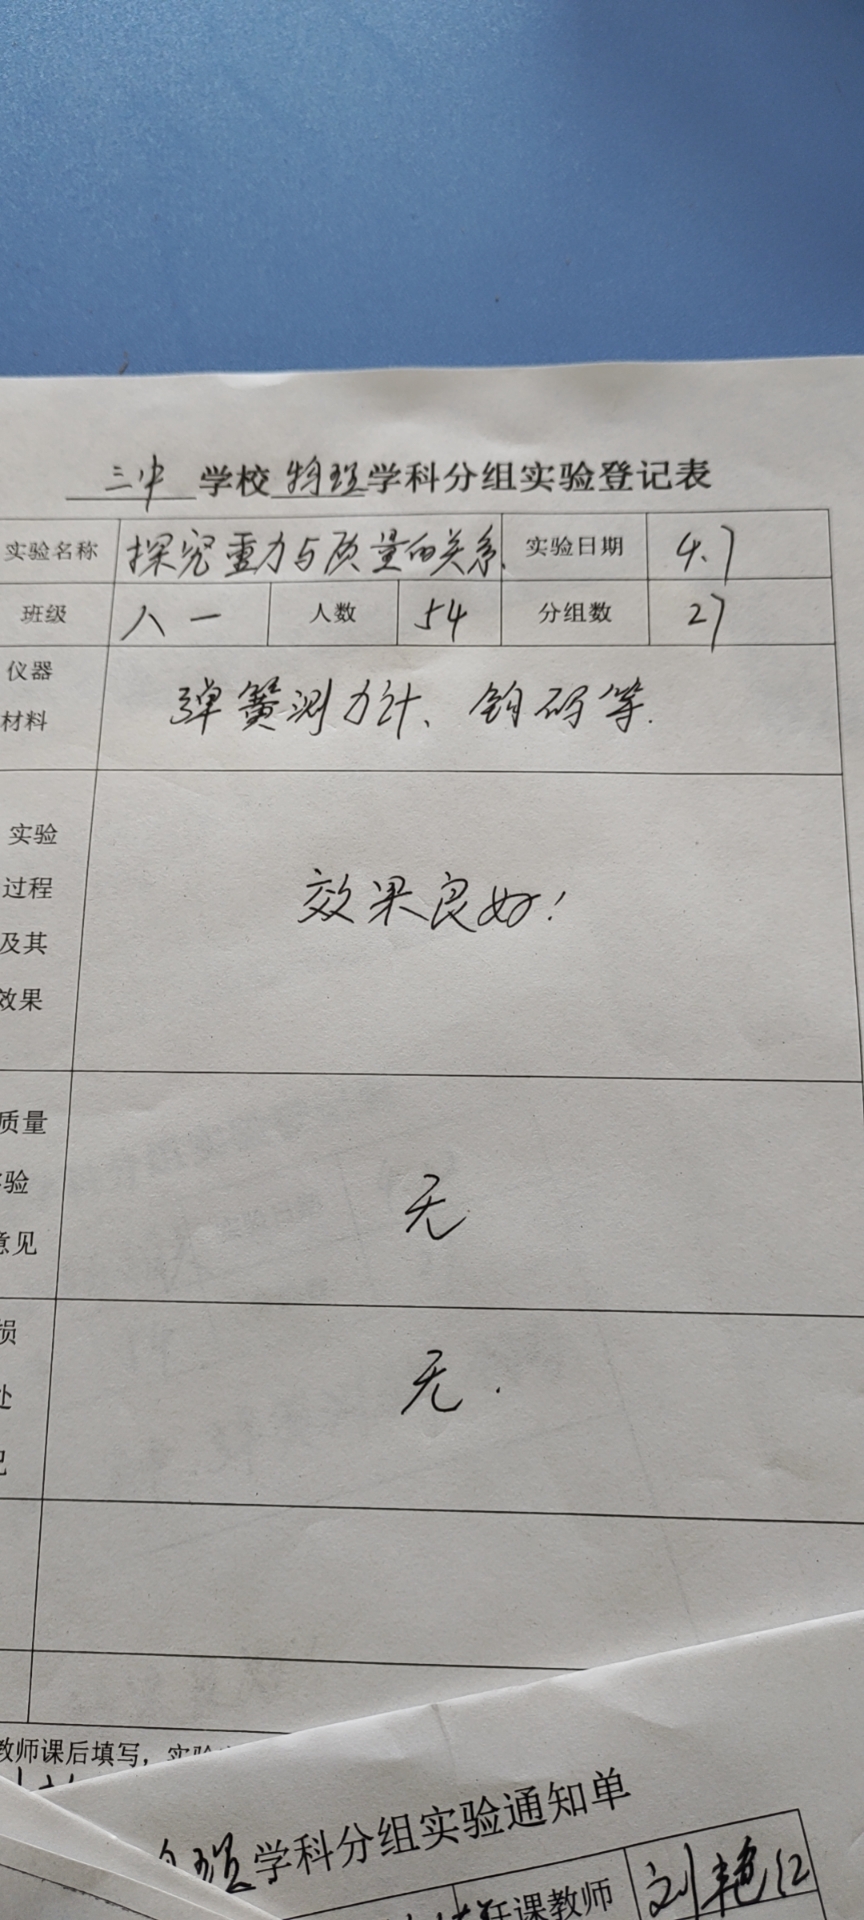 三中学校物理学科分组实验登记表
实验名称 探究重力与质量的关系 实验日期 4.7
班级 八一 人数 54 分组数 27
仪器
材料
弹簧测力计、钩码等.
实验
过程
及其
效果
效果良好!
质量
验
意见
无
损
处
无.
教师课后填写，实验
理学科分组实验通知单
任课教师 刘艳红